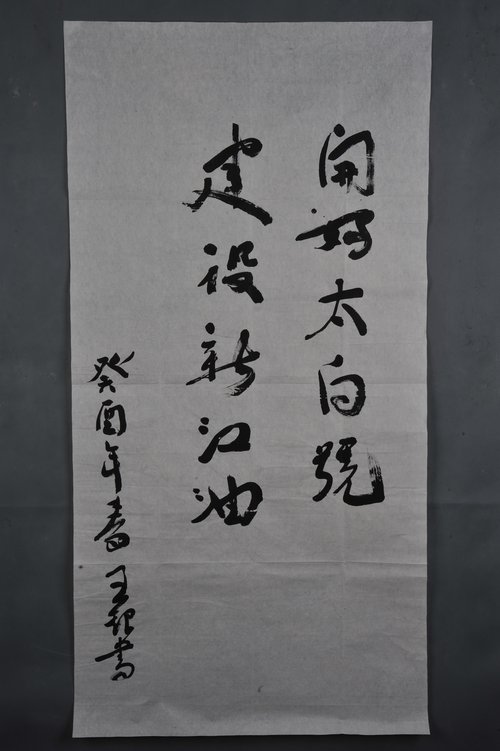 開好太白號
建設新江油
癸酉年春 王書